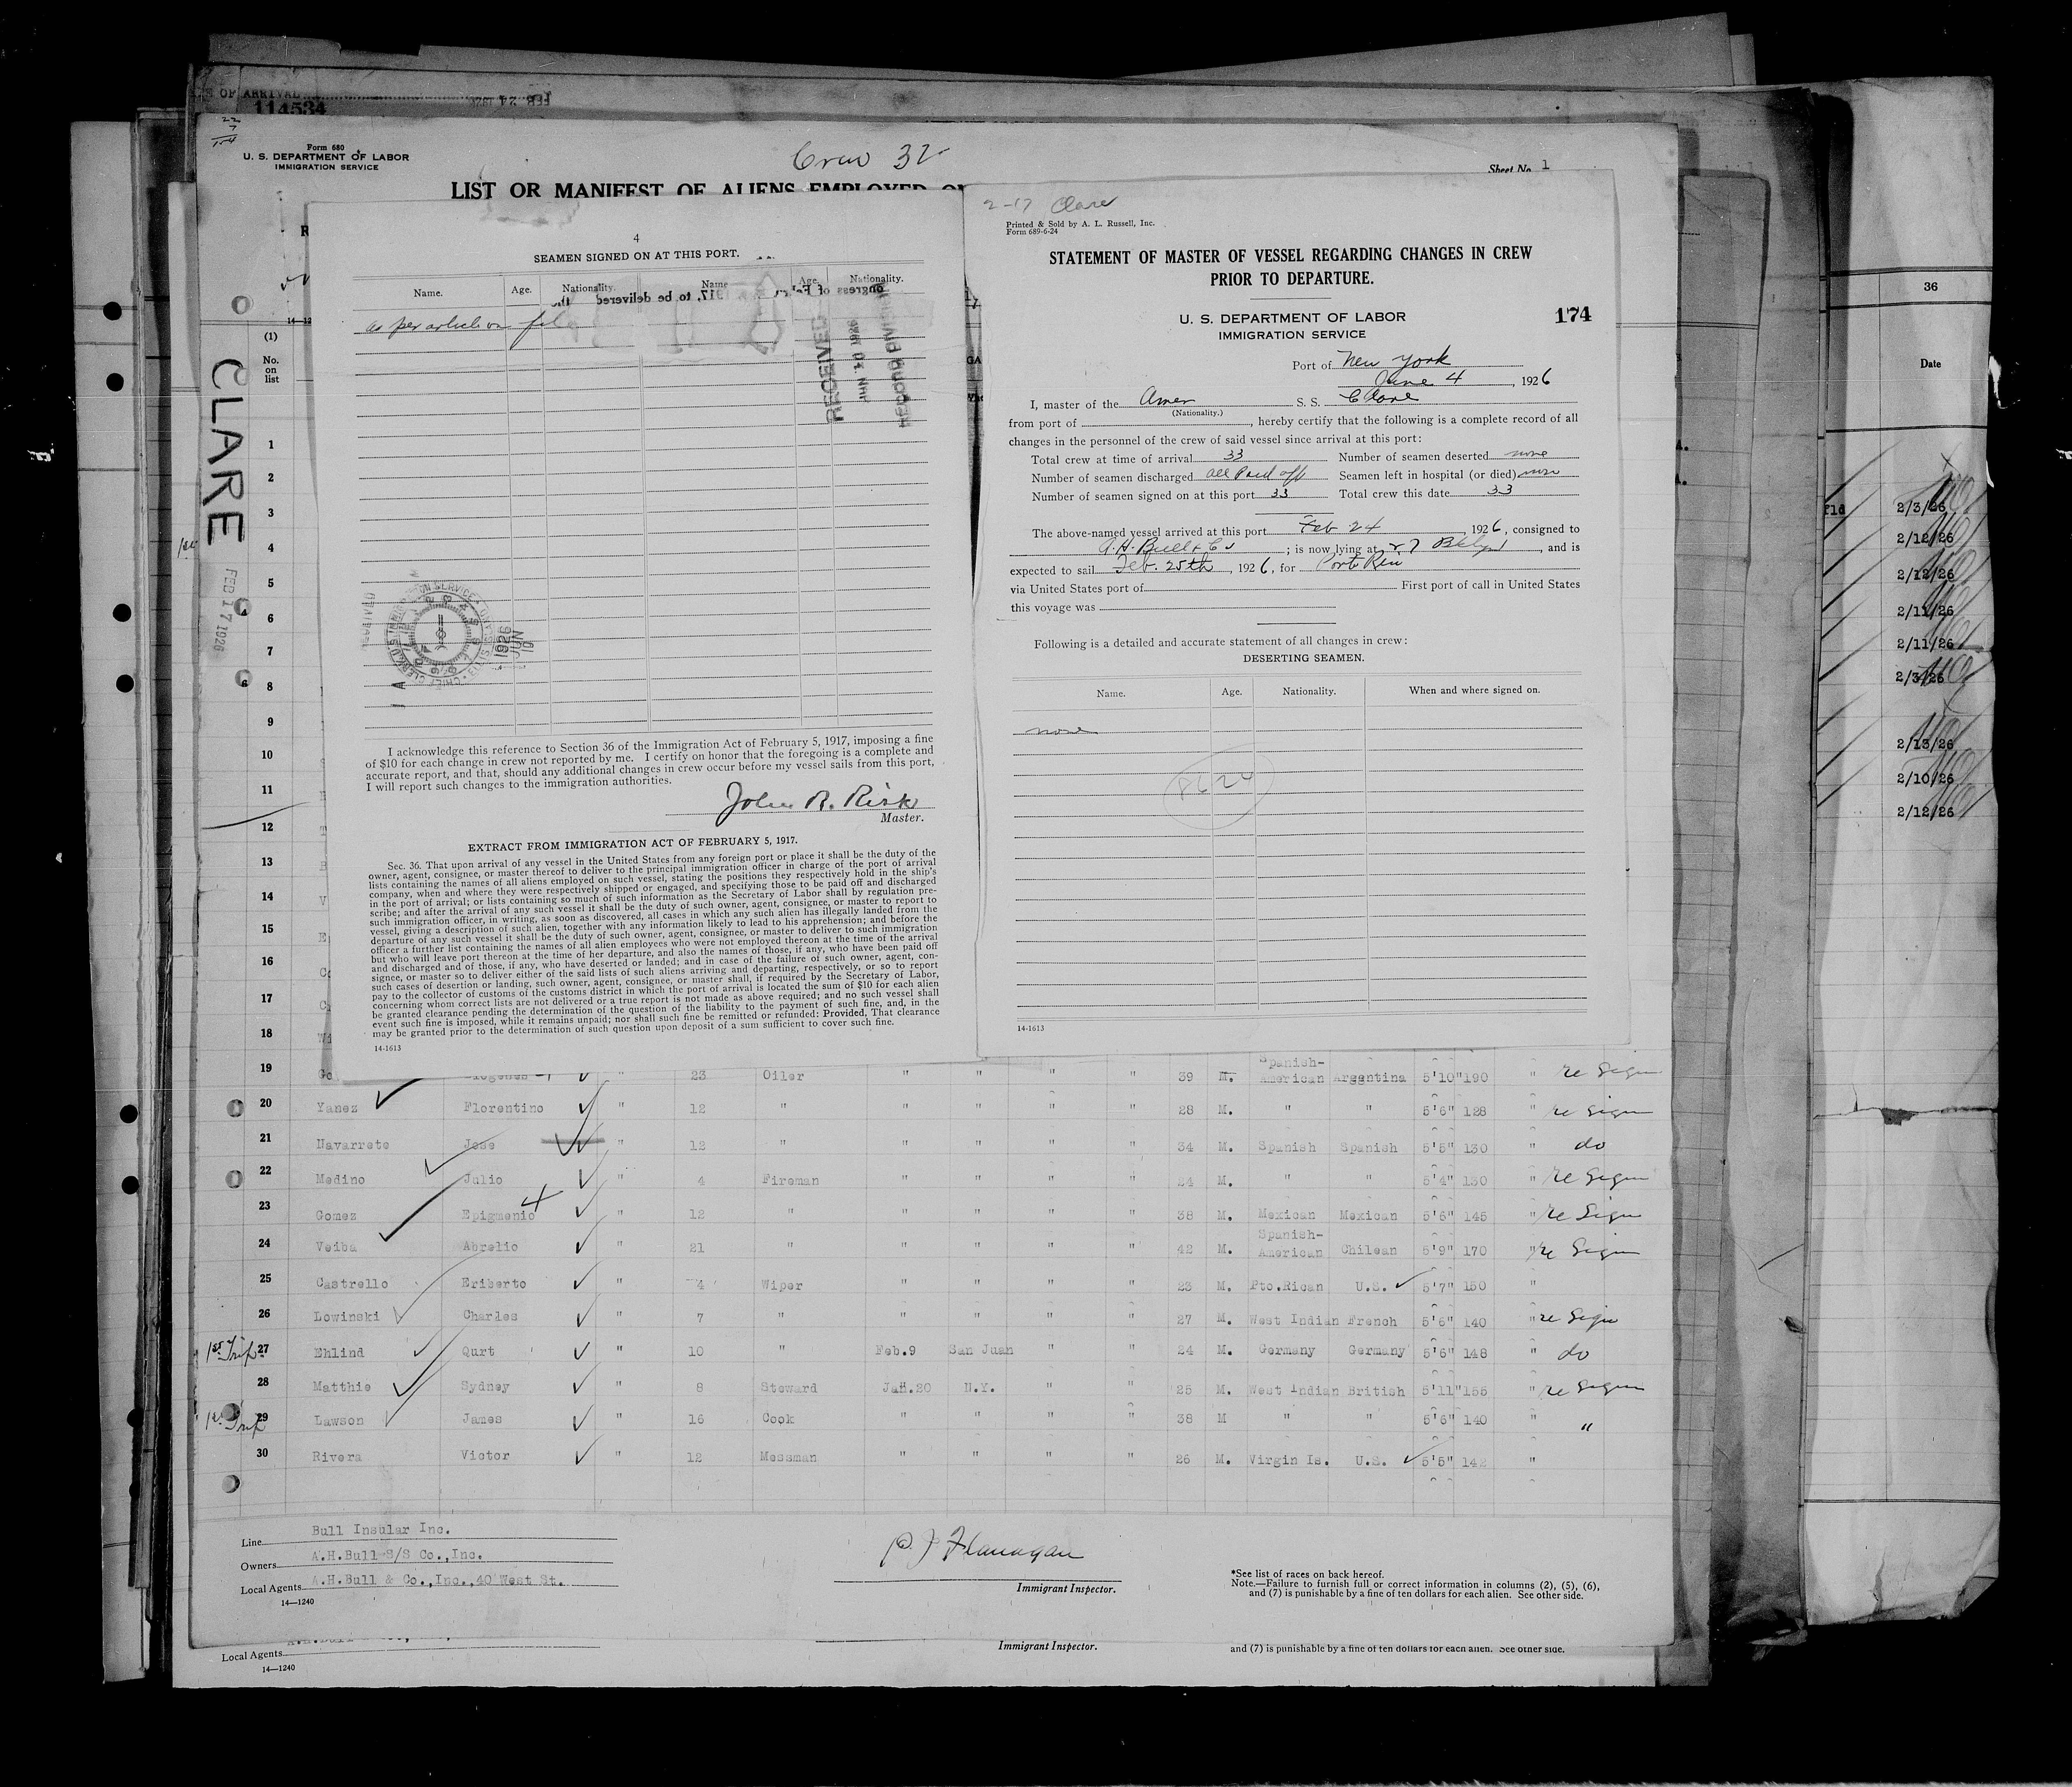 S OF ARRIVAL
114534
FEB 24 192
Form 680
U. S. DEPARTMENT OF LABOR
IMMIGRATION SERVICE
Crew 32
Sheet No. 1
LIST OR MANIFEST OF ALIENS EMPLOYED O
CLARE
FEB 17 1926
(1)
No.
on
list
4
SEAMEN SIGNED ON AT THIS PORT.
Name. Age. Nationality. Name Age. Nationality.
ongress of Feb 1917, to be delivered the
as per article on file
RECEIVED
RECORD DIVISION
I acknowledge this reference to Section 36 of the Immigration Act of February 5, 1917, imposing a fine
of $10 for each change in crew not reported by me. I certify on honor that the foregoing is a complete and
accurate report, and that, should any additional changes in crew occur before my vessel sails from this port,
I will report such changes to the immigration authorities.
John R. Risk
Master.
EXTRACT FROM IMMIGRATION ACT OF FEBRUARY 5, 1917.
Sec. 36. That upon arrival of any vessel in the United States from any foreign port or place it shall be the duty of the
owner, agent, consignee, or master thereof to deliver to the principal immigration officer in charge of the port of arrival
lists containing the names of all aliens employed on such vessel, stating the positions they respectively hold in the ship's
company, when and where they were respectively shipped or engaged, and specifying those to be paid off and discharged
in the port of arrival; or lists containing so much of such information as the Secretary of Labor shall by regulation pre-
scribe; and after the arrival of any such vessel it shall be the duty of such owner, agent, consignee, or master to report to
such immigration officer, in writing, as soon as discovered, all cases in which any such alien has illegally landed from the
vessel, giving a description of such alien, together with any information likely to lead to his apprehension; and before the
departure of any such vessel it shall be the duty of such owner, agent, consignee, or master to deliver to such immigration
officer a further list containing the names of all alien employees who were not employed thereon at the time of the arrival
but who will leave port thereon at the time of her departure, and also the names of those, if any, who have been paid off
and discharged and of those, if any, who have deserted or landed; and in case of the failure of such owner, agent, con-
signee, or master so to deliver either of the said lists of such aliens arriving and departing, respectively, or so to report
such cases of desertion or landing, such owner, agent, consignee, or master shall, if required by the Secretary of Labor,
pay to the collector of customs of the customs district in which the port of arrival is located the sum of $10 for each alien
concerning whom correct lists are not delivered or a true report is not made as above required; and no such vessel shall
be granted clearance pending the determination of the question of the liability to the payment of such fine, and, in the
event such fine is imposed, while it remains unpaid; nor shall such fine be remitted or refunded: Provided, That clearance
may be granted prior to the determination of such question upon deposit of a sum sufficient to cover such fine.
14-1613
2-17 Clare
Printed & Sold by A. L. Russell, Inc.
Form 689-6-24
STATEMENT OF MASTER OF VESSEL REGARDING CHANGES IN CREW
PRIOR TO DEPARTURE.
U. S. DEPARTMENT OF LABOR
IMMIGRATION SERVICE
174
Port of New York
June 4, 1926
I, master of the Amer S. S. Clare
(Nationality.)
from port of , hereby certify that the following is a complete record of all
changes in the personnel of the crew of said vessel since arrival at this port:
Total crew at time of arrival 33 Number of seamen deserted none
Number of seamen discharged all Paid off Seamen left in hospital (or died) none
Number of seamen signed on at this port 33 Total crew this date 33
The above-named vessel arrived at this port Feb 24, 1926, consigned to
A. H. Bull & Co ; is now lying at 27 Bklyn, and is
expected to sail Feb. 25th, 1926, for Porto Rico
via United States port of First port of call in United States
this voyage was
Following is a detailed and accurate statement of all changes in crew:
DESERTING SEAMEN.
Name. Age. Nationality. When and where signed on.
none
14-1613
36
Date
2/3/26
2/12/26
2/12/26
2/11/26
2/11/26
2/3/26
2/13/26
2/10/26
2/12/26
1
2
3
4
5
6
7
8
9
10
11
12
13
14
15
16
17
18
19 Go Diogenes " 23 Oiler " " " " 39 M. Spanish-American Argentina 5'10" 190 " re sign
20 Yanez Florentino " 12 " " " " " 28 M. " " 5'6" 128 " re sign
21 Navarrete Jose 12 " " " " " 34 M. Spanish Spanish 5'5" 130 " do
22 Medino Julio " 4 Fireman " " " " 24 M. " " 5'4" 130 " re sign
23 Gomez Epigmenio " 12 " " " " " 38 M. Mexican Mexican 5'6" 145 " re sign
24 Veiba Abrelio " 21 " " " " " 42 M. Spanish-American Chilean 5'9" 170 " re sign
25 Castrello Eriberto " 4 Wiper " " " " 23 M. Pto.Rican U.S. 5'7" 150 "
26 Lowinski Charles " 7 " " " " " 27 M. West Indian French 5'6" 140 " re sign
1st Trip 27 Ehlind Qurt " 10 " Feb.9 San Juan " " 24 M. Germany Germany 5'6" 148 " do
28 Matthie Sydney " 8 Steward Jan.20 N.Y. " " 25 M. West Indian British 5'11" 155 " re sign
1st Trip 29 Lawson James " 16 Cook " " " " 38 M " " 5'6" 140 " "
30 Rivera Victor " 12 Messman " " " " 26 M. Virgin Is. U.S. 5'5" 142 "
Line Bull Insular Inc.
Owners A.H.Bull S/S Co.,Inc.
Local Agents A.H.Bull & Co.,Inc.,40 West St.
14—1240
P J Flanagan
Immigrant Inspector.
*See list of races on back hereof.
Note.—Failure to furnish full or correct information in columns (2), (5), (6),
and (7) is punishable by a fine of ten dollars for each alien. See other side.
Local Agents
14—1240
Immigrant Inspector.
and (7) is punishable by a fine of ten dollars for each alien. See other side.